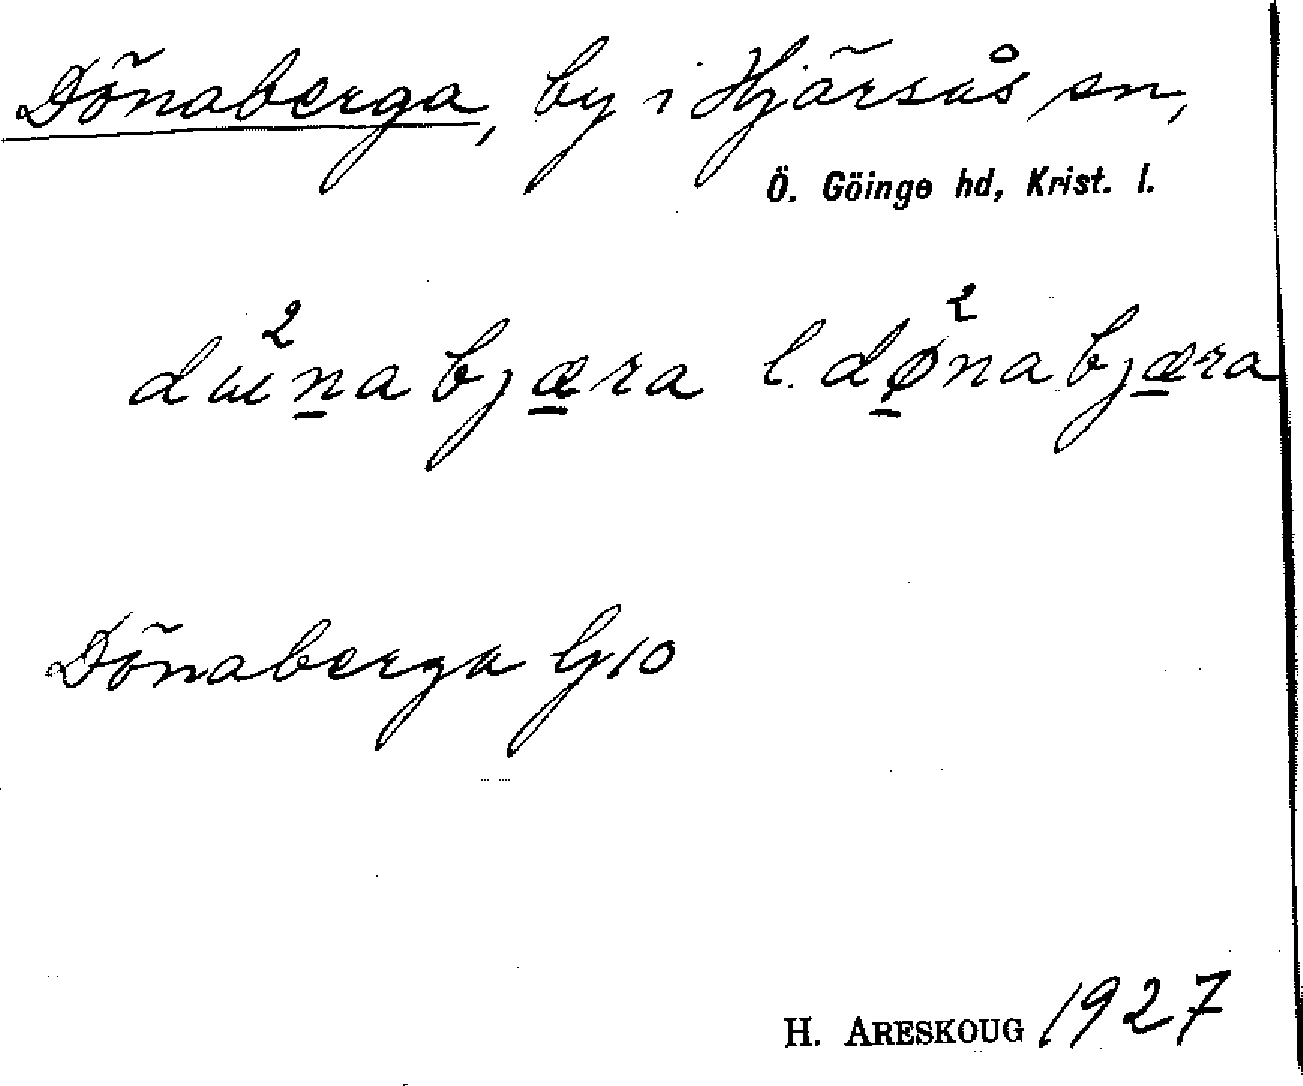 Dönaberga, by i Hjärsås sn,
Ö. Göinge hd, Krist. l.
l. dø²nabjæra
Dönaberga G10
H. ARESKOUG 1927